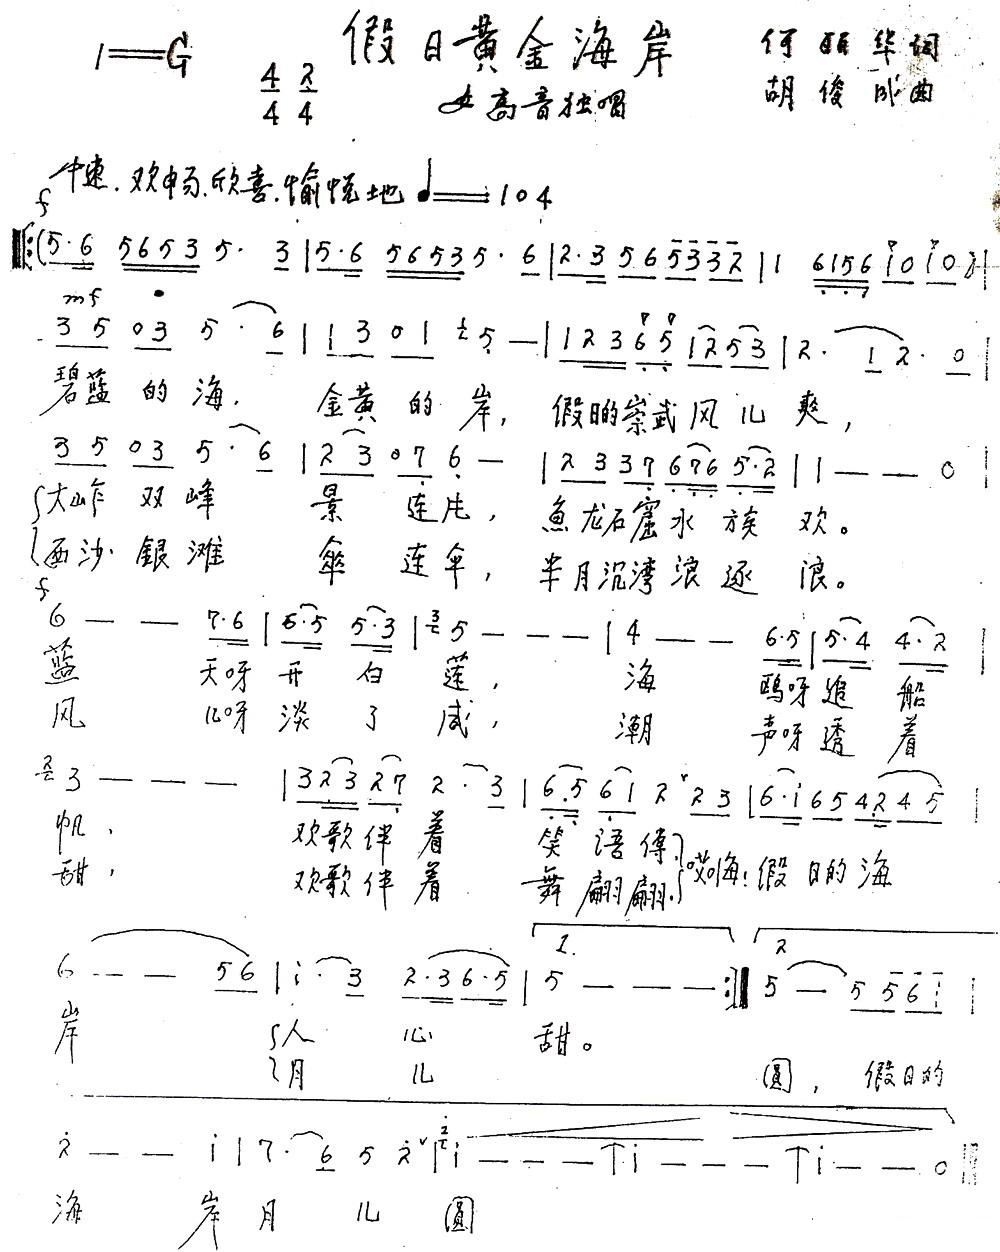 假日黄金海岸
1=G 4/4 2/4
女高音独唱
何丽华词
胡俊成曲
中速.欢畅.欣喜.愉悦地 ♩=104
f
(5·6 5653 5· 3 | 5·6 5653 5· 6 | 2·3 56 5332 | 1 6156 i0 i0)
mf
3 5 03 5· 6 | 1 3 0 1 5 — | 1 2 3 6 5 12 53 | 2· 1 2· 0 |
碧蓝的海. 金黄的岸, 假日的崇武风儿爽,
3 5 03 5· 6 | 2 3 0 7 6 — | 2 3 3 7 676 5·2 | 1 — — 0 |
大岞双峰 景连片, 魚龙石窟水族欢。
西沙銀滩 傘连伞, 半月沉湾浪逐浪。
f
6 — — 7·6 | 6·5 5·3 | 5 — — — | 4 — — 6·5 | 5·4 4·2 |
蓝 天呀开白莲, 海 鸥呀追船
风 儿呀淡了咸, 潮 声呀透着
3 — — — | 323 27 2· 3 | 6·5 61 2 23 | 6·i 65 42 45 |
帆, 欢歌伴着 笑语传. 哎嗨!假日的海
甜, 欢歌伴着 舞翩翩.
1. 2
6 — — 56 | i· 3 2·3 6·5 | 5 — — — :‖ 5 — 5 5 6 i |
岸 人心 甜。
月儿 圓, 假日的
2 — — i | 7· 6 5 2 | i — — — ↑i — — — ↑i — — 0
海 岸月儿圓